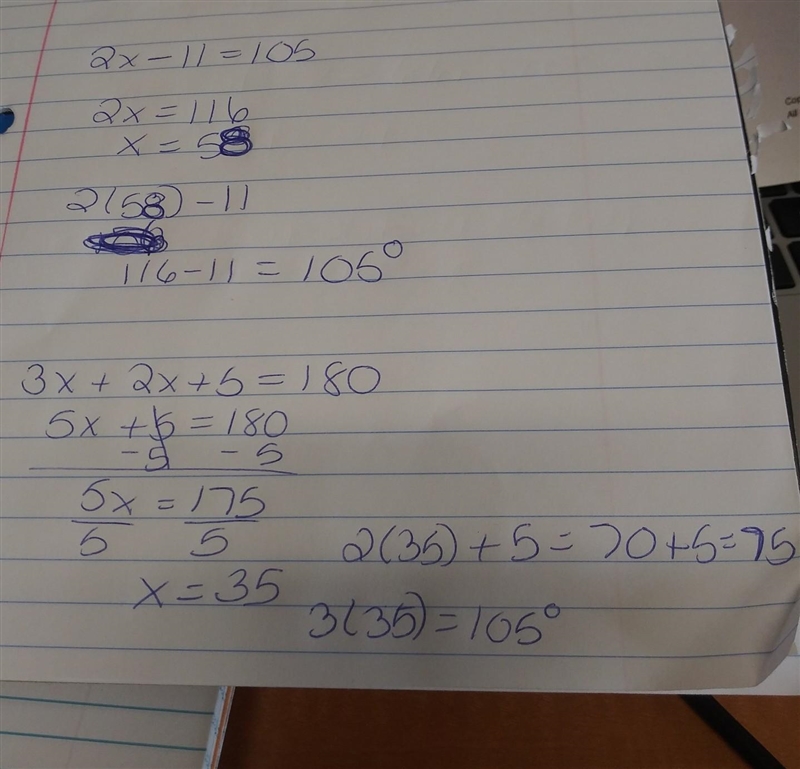 2x - 11 = 105
2x = 116
x = 58
2(58) - 11
116 - 11 = 105°
3x + 2x + 5 = 180
5x + 5 = 180
- 5 - 5
5x = 175
5 5
x = 35
2(35) + 5 = 70 + 5 = 75
3(35) = 105°